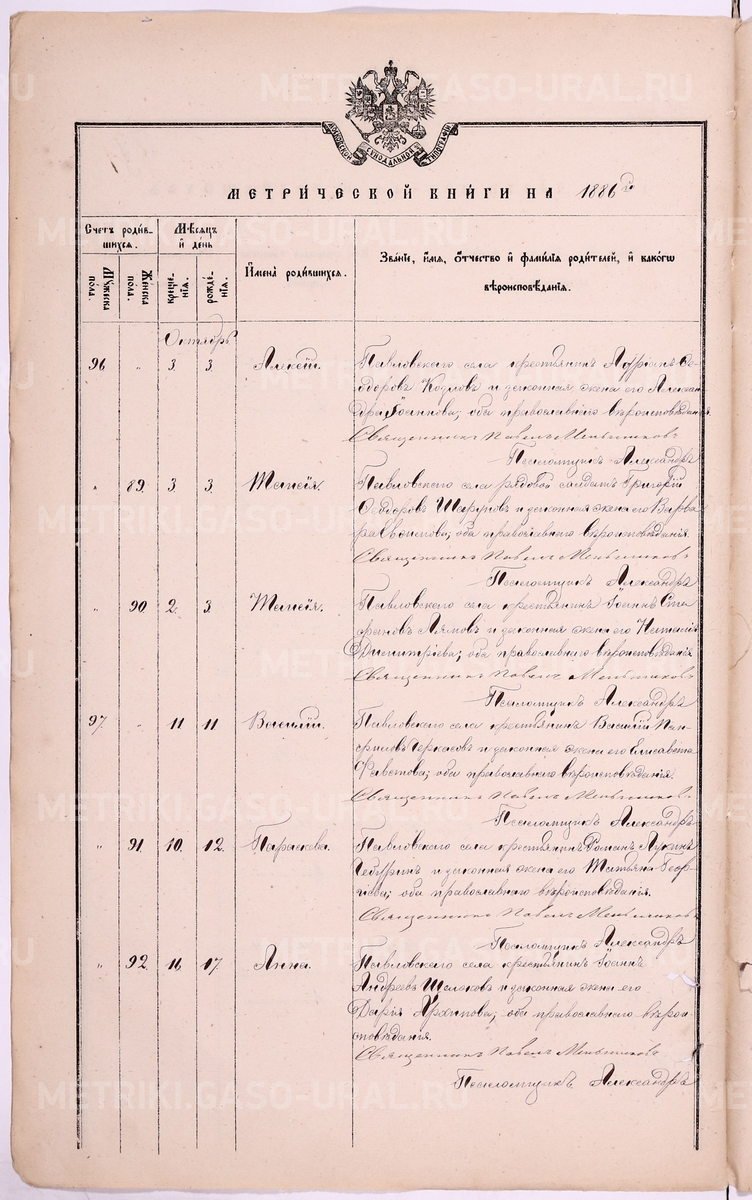 METRIKI.GASO-URAL.RU
МОСКОВСКОЙ СѴНОДАЛЬНОЙ ТИПОГРАФІИ
МЕТРИЧЕСКОЙ КНИГИ НА 1886 г.
Счетъ родив-
шихся.
Мѣсяцъ
и день
Имена родившихся.
Званіе, имя, отчество и фамилія родителей, и какого
вѣроисповѣданія.
Мужеска
пола.
Женска
пола.
креще-
нія.
рожде-
нія.
Октябрь
96 " 3 3 Алексій. Павловскаго села крестьянинъ Адріанъ Ѳе-
одоровъ Козловъ и законная жена его Алексан-
дра Іоаннова; оба православнаго вѣроисповѣданія.
Священникъ Павелъ Меньшиковъ
Псаломщикъ Александръ
" 89. 3. 3. Павловскаго села рядовой солдатъ Григорій
Ѳеодоровъ и законная жена его Варва-
ра оба православнаго вѣроисповѣданія.
Священникъ Павелъ Меньшиковъ
Псаломщикъ Александръ
" 90 2. 3. Павловскаго села крестьянинъ Іоаннъ Сте-
фановъ и законная жена его Наталія
Димитріева; оба православнаго вѣроисповѣданія.
Священникъ Павелъ Меньшиковъ
Псаломщикъ Александръ
97. " 11 11 Василій. Павловскаго села крестьянинъ Василій Пан-
филовъ Черкасовъ и законная жена его Елисавета
оба православнаго вѣроисповѣданія.
Священникъ Павелъ Меньшиковъ
Псаломщикъ Александръ
" 91. 10. 12. Параскева. Павловскаго села крестьянинъ Романъ Лукинъ
и законная жена его Татьяна Геор-
гіева; оба православнаго вѣроисповѣданія.
Священникъ Павелъ Меньшиковъ
Псаломщикъ Александръ
" 92. 16 17. Анна. Павловскаго села крестьянинъ Іоаннъ
Андреевъ и законная жена его
Дарія Архипова; оба православнаго вѣрои-
сповѣданія.
Священникъ Павелъ Меньшиковъ
Псаломщикъ Александръ